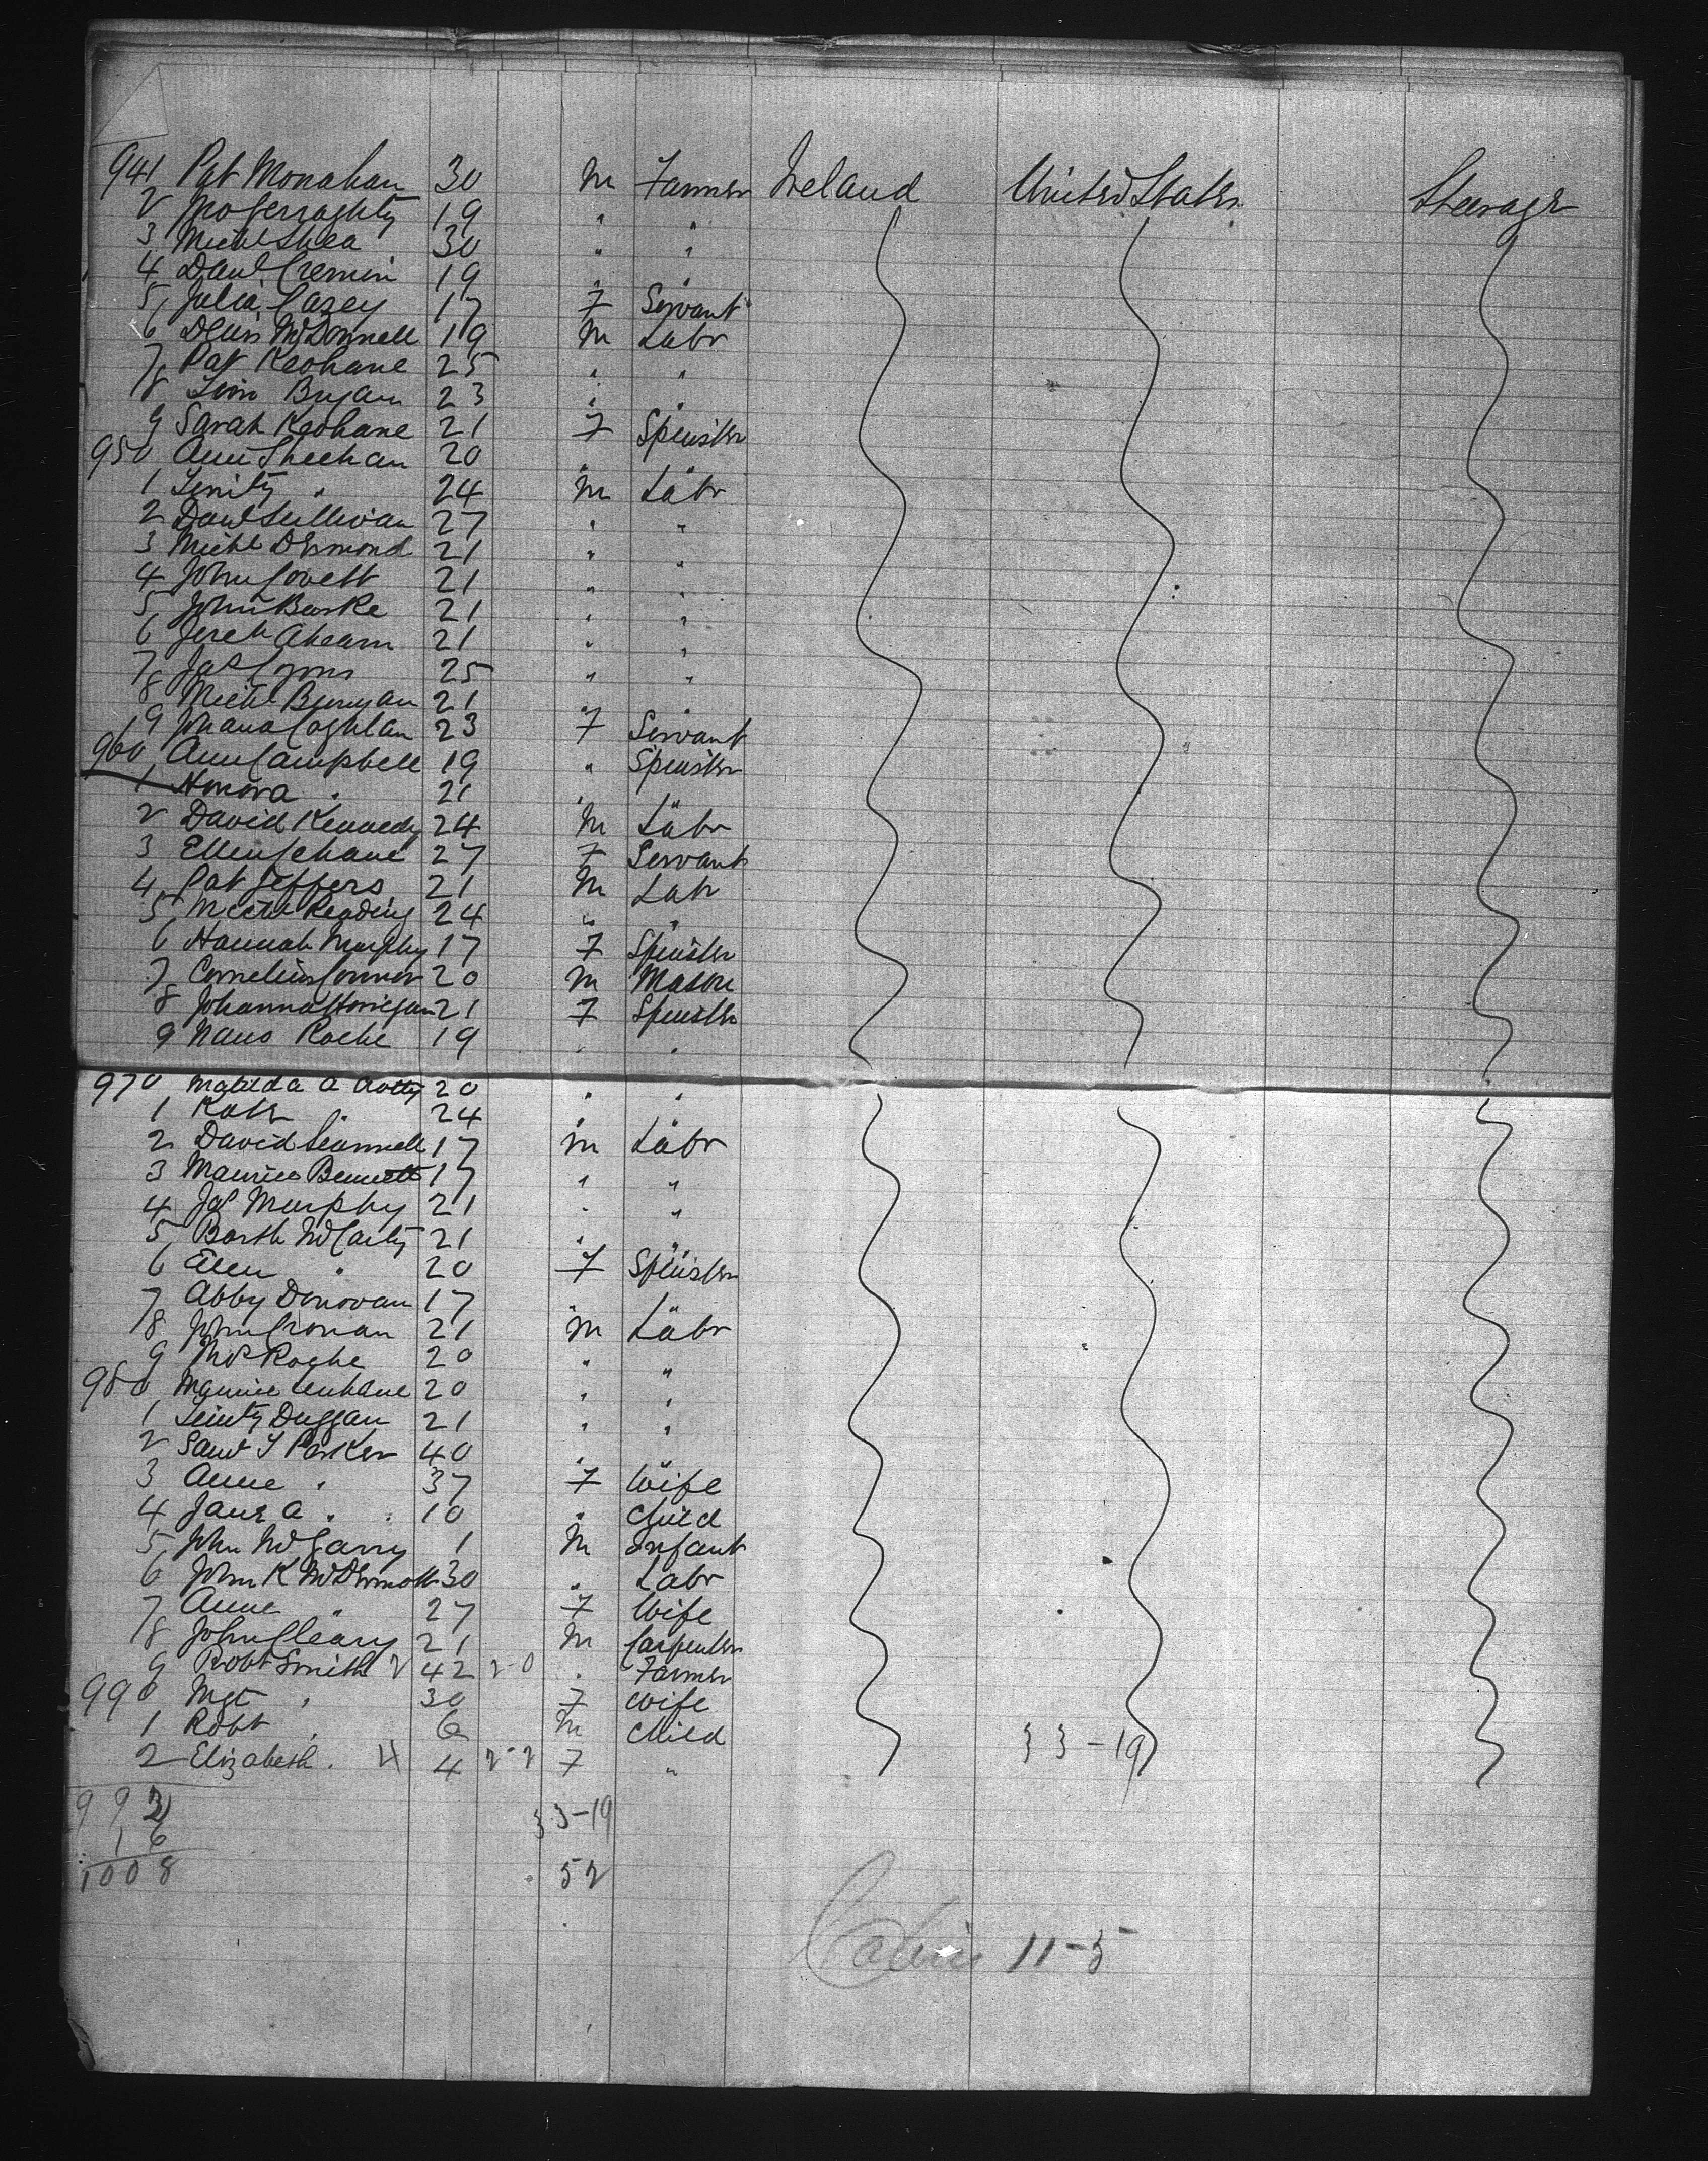 941 Pat Monahan 30 M Farmer Ireland United States Steerage
2 Geraghty 19 " "
3 Michl Shea 30 " "
4 Danl Cremin 19 "
5 Julia Casey 17 F Servant
6 Denis McDonnell 19 M Labr
7 Pat Keohane 25 " "
8 Bryan 23 " "
9 Sarah Keohane 21 F Spinster
950 Ann Sheehan 20 " "
1 Timty " 24 M Labr
2 Danl Sullivan 27 " "
3 Michl Desmond 21 " "
4 John Lovett 21 " "
5 John Burke 21 " "
6 Jereh Ahearn 21 " "
7 Jas Lyons 25 " "
8 Michl Bunyan 21 " "
9 Johana Coghlan 23 F Servant
960 Ann Campbell 19 " Spinster
1 Honora " 21 " "
2 David Kennedy 24 M Labr
3 Ellen 27 F Servant
4 Pat Jeffers 21 M Labr
5 Michl Reading 24 " "
6 Hannah Murphy 17 F Spinster
7 Cornelius Connor 20 M Mason
8 Johanna Horrigan 21 F Spinster
9 Nano Roche 19 " "
970 Matilda A 20 " "
1 Kate " 24 " "
2 David Scannell 17 M Labr
3 Maurice Bennett 17 " "
4 Jas Murphy 21 " "
5 Barth McCarty 21 " "
6 Ellen " 20 F Spinster
7 Abby Donovan 17 " "
8 John Cronan 21 M Labr
9 Roche 20 " "
980 Maurice 20 " "
1 Timty Duggan 21 " "
2 Saml T Parker 40 " "
3 Anne " 37 F Wife
4 Jane A " 10 " Child
5 John McGarry 1 M Infant
6 John K McDermott 30 " Labr
7 Anne " 27 F Wife
8 John Cleary 21 M Carpenter
9 Robt Smith 2 42 2-0 " Farmer
990 Mgt " 30 F Wife
1 Robt " 6 M Child
2 Elizabeth " 4 4 2-2 F " 33-19
992 33-19
16
1008 52
Cabin 11-5